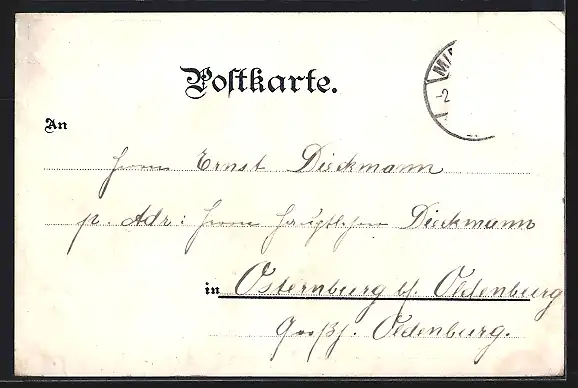 Postkarte.
MA
-2
An
Herrn Ernst Dieckmann
p. Adr: Herrn Hauptlehrer Dieckmann
in Osternburg b/ Oldenburg
Großh. Oldenburg.